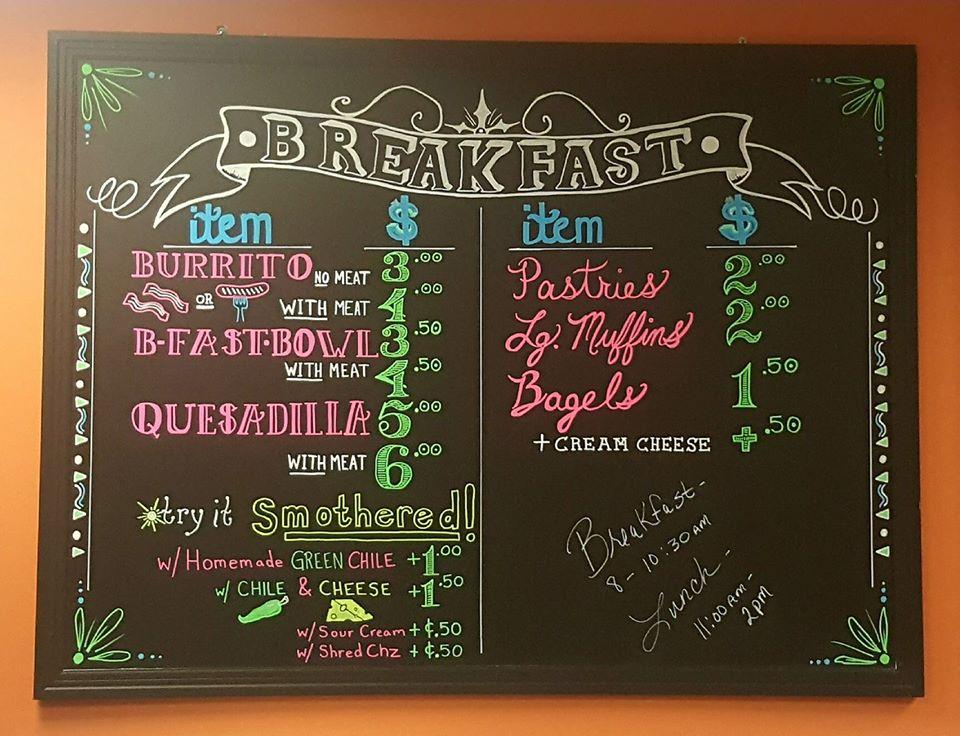 BREAKFAST
item $
BURRITO NO MEAT 3.00
OR WITH MEAT 4.00
B-FAST-BOWL 3.50
WITH MEAT 4.50
QUESADILLA 5.00
WITH MEAT 6.00
try it Smothered!
w/ Homemade GREEN CHILE +1.00
w/ CHILE & CHEESE +1.50
w/ Sour Cream + ¢.50
w/ Shred Chz + ¢.50
item $
Pastries 2.00
Lg. Muffins 2.00
Bagels 1.50
+ CREAM CHEESE +.50
Breakfast-
8-10:30AM
Lunch-
11:00AM-
2PM